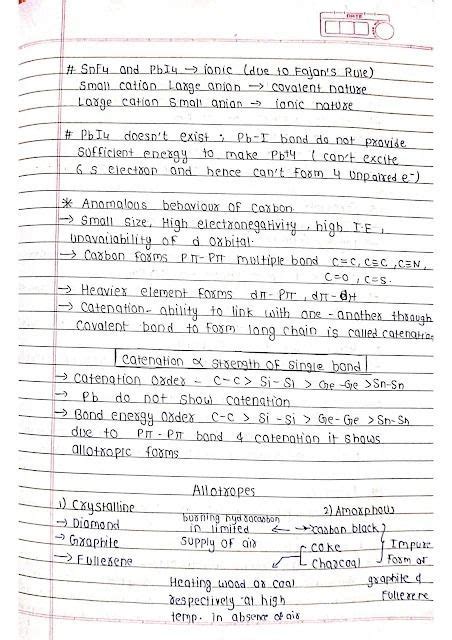 DATE
# SnF4 and PbI4 → ionic (due to Fajan's Rule)
Small cation Large anion → covalent nature
Large cation Small anion → ionic nature
# PbI4 doesn't exist ; Pb-I bond do not provide
sufficient energy to make Pb+4 ( can't excite
6 s electron and hence can't form 4 unpaired e-)
* Anomalous behaviour of Carbon
→ Small size, High electronegativity, high I.E,
unavailability of d orbital.
→ Carbon forms Pπ-Pπ multiple bond C=C, C≡C, C≡N,
C=O, C=S.
→ Heavier element forms dπ-Pπ, dπ-dπ
→ Catenation- ability to link with one-another through
Covalent bond to form long chain is called catenation
Catenation ∝ strength of single bond
→ Catenation order - C-C > Si-Si > Ge-Ge > Sn-Sn
→ Pb do not show catenation
→ Bond energy order C-C > Si-Si > Ge-Ge > Sn-Sn
due to Pπ-Pπ bond & catenation it shows
allotropic forms
Allotropes
1) Crystalline
2) Amorphous
→ Diamond
→ Graphite
→ Fullerene
burning hydrocarbon
in limited
supply of air
← → carbon black
coke
charcoal
Impure
form of
graphite &
Fullerene
Heating wood or coal
respectively at high
temp. in absence of air